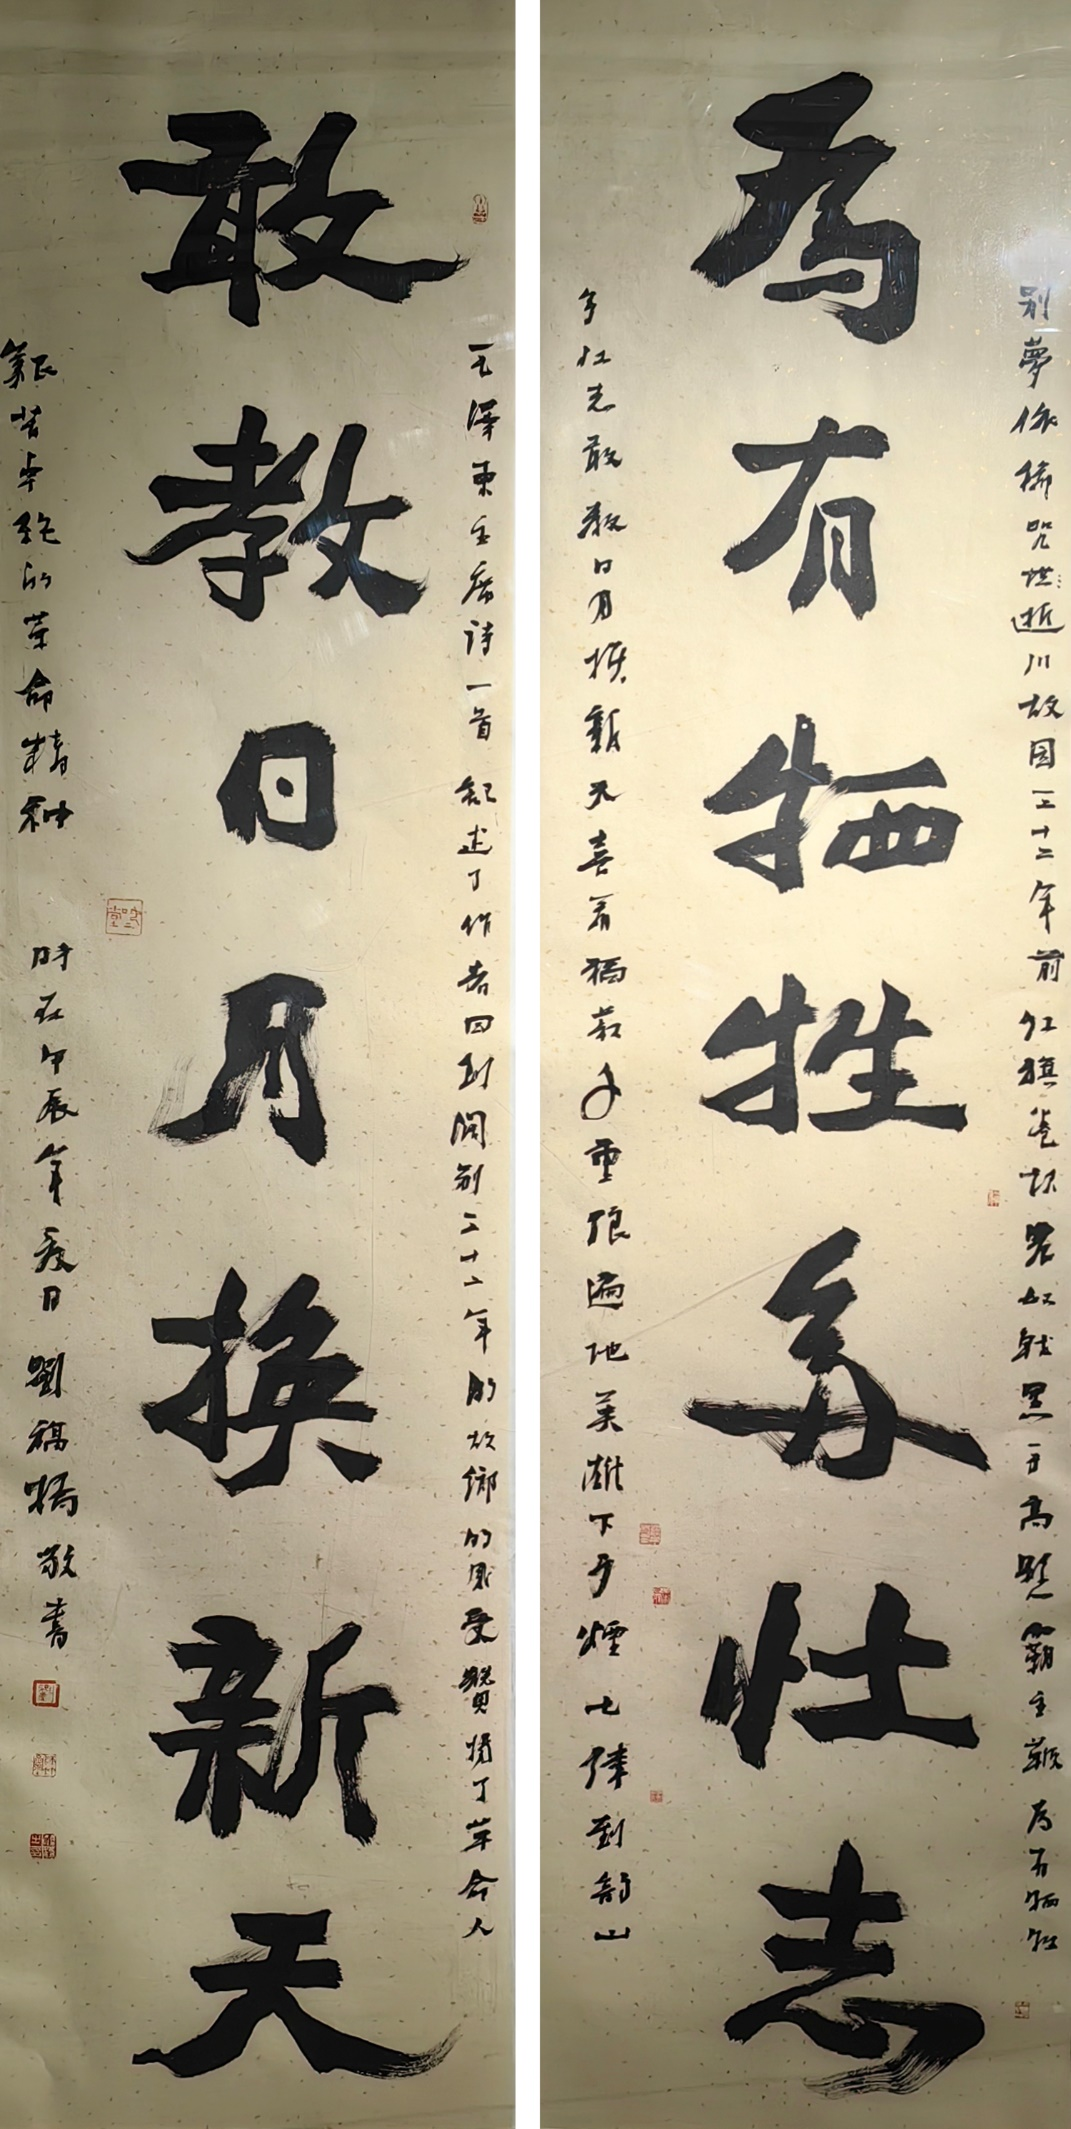 為有犧牲多壮志
别夢依稀咒逝川故园三十二年前红旗卷起农奴戟黑手高悬霸主鞭为有牺牲
多壮志敢教日月换新天喜看稻菽千重浪遍地英雄下夕煙七律到韶山
敢教日月换新天
毛泽东主席诗一首叙述了作者回到阔别三十二年的故鄉的感受赞扬了革命人
艰苦卓绝的革命精神 时在甲辰年夏日劉 敬書